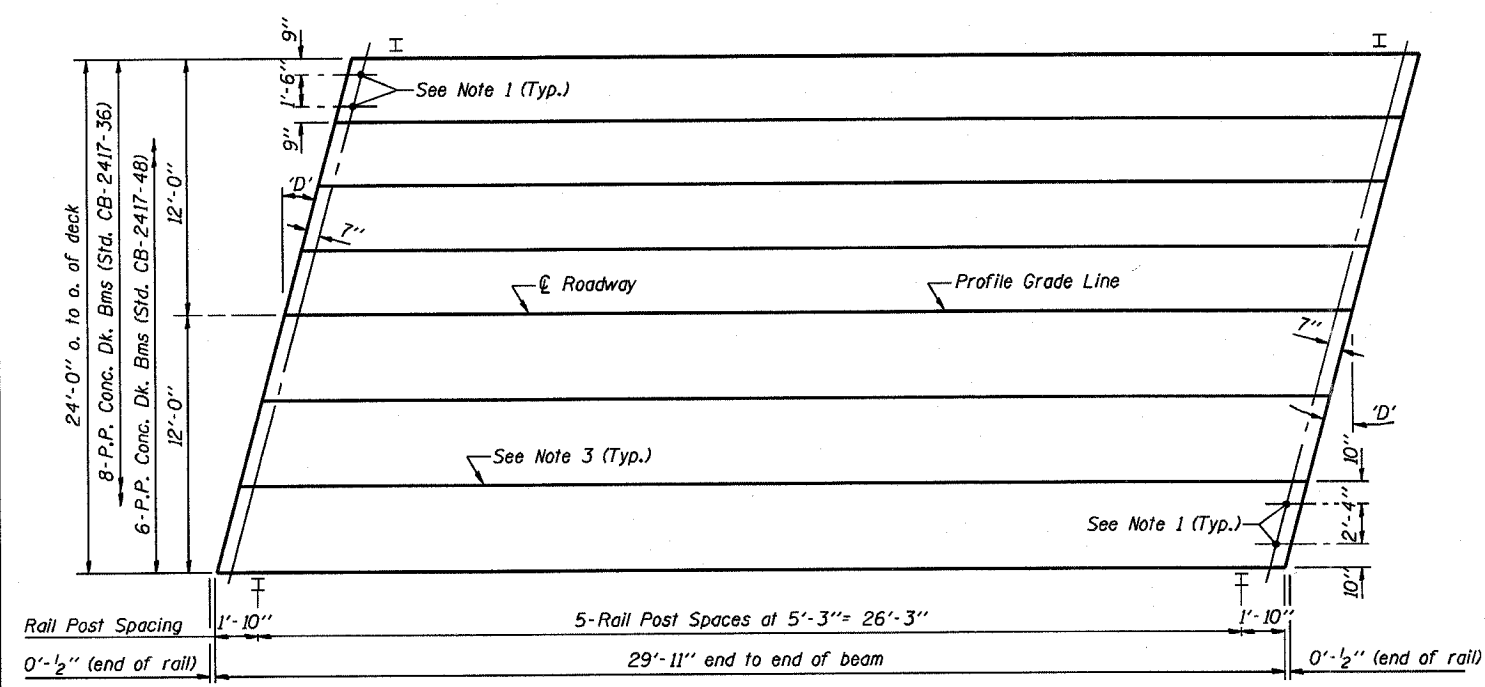 9"
1'-6"
9"
See Note 1 (Typ.)
'D'
7"
24'-0" o. to o. of deck
8-P.P. Conc. Dk. Bms (Std. CB-2417-36)
6-P.P. Conc. Dk. Bms (Std. CB-2417-48)
12'-0"
12'-0"
℄ Roadway
Profile Grade Line
7"
'D'
See Note 3 (Typ.)
See Note 1 (Typ.)
10"
2'-4"
10"
Rail Post Spacing
1'-10"
5-Rail Post Spaces at 5'-3"= 26'-3"
1'-10"
0'-½" (end of rail)
29'-11" end to end of beam
0'-½" (end of rail)